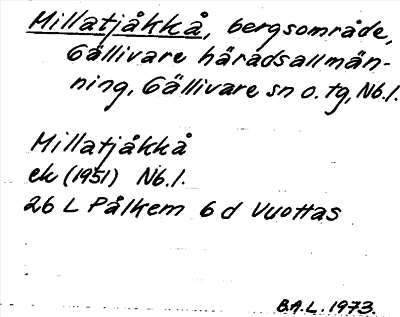 Millatjåkkå, bergsområde,
Gällivare häradsallmän-
ning, Gällivare sn o. tg, Nb.l.
Millatjåkkå
ek (1951) Nb.l.
26 L Pålkem 6 d Vuottas
B.A.L. 1973.